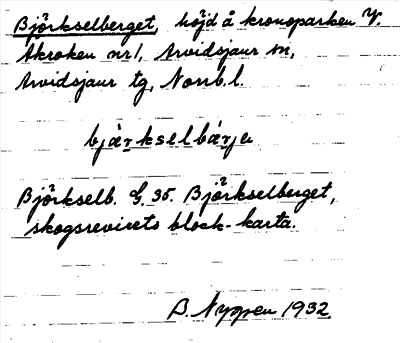 Björkselberget, höjd å kronoparken V.
Akroken nr 1, Arvidsjaur sn,
Arvidsjaur tg, Norrb. l.
bjärkselbärje
Björkselb. G. 35. Björkselberget,
skogsrevirets block-karta.
B. Nyppen 1932.